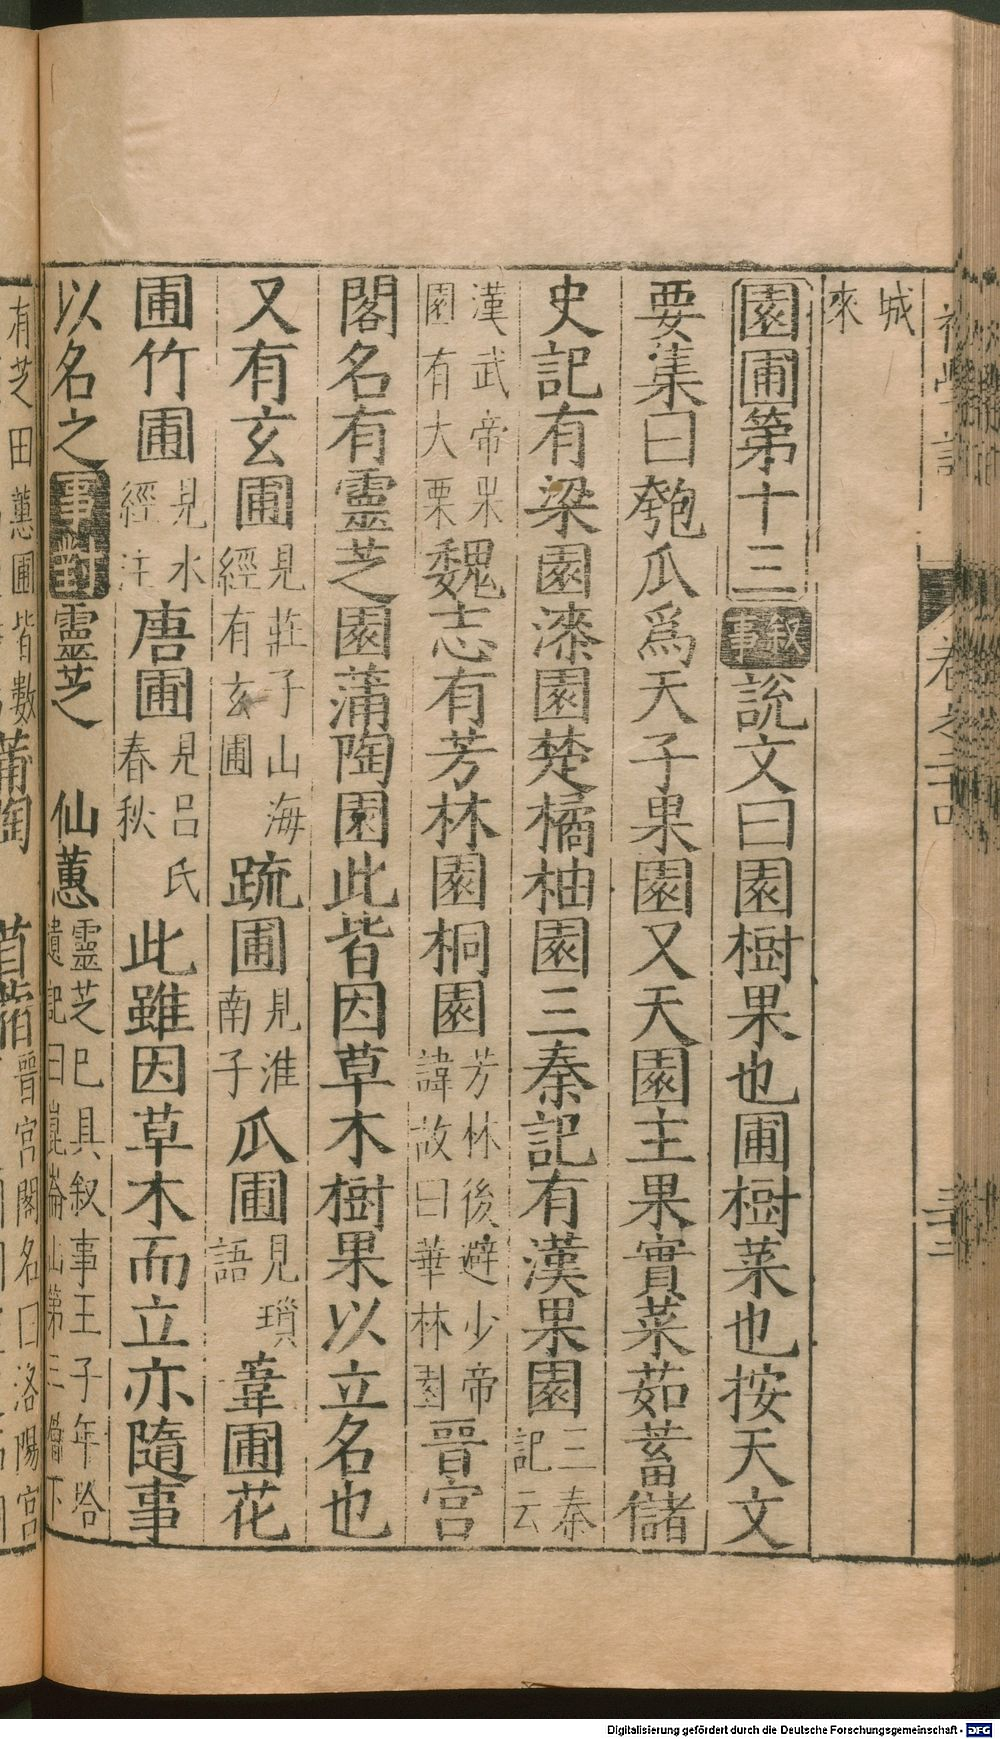 初學記 卷之二十四 三三
城
來
園圃第十三 叙事 說文曰園樹果也圃樹菜也按天文
要集曰匏瓜爲天子果園又天園主果實菜茹蓄儲
史記有梁園漆園楚橘柚園三秦記有漢果園 三秦
記云
漢武帝果
園有大栗 魏志有芳林園桐園 芳林後避少帝
諱故曰華林園 晉宮
閣名有靈芝園蒲陶園此皆因草木樹果以立名也
又有玄圃 見莊子山海
經有玄圃 疏圃 見淮
南子 瓜圃 見瑣
語 葦圃花
圃竹圃 見水
經注 唐圃 見呂氏
春秋 此雖因草木而立亦隨事
以名之 事對 靈芝 仙蕙 靈芝已具叙事王子年拾
遺記曰崑崙山第三層下
有芝田蕙圃皆數
蒲陶 苜蓿 晉宮閣名曰洛陽宮
Digitalisierung gefördert durch die Deutsche Forschungsgemeinschaft - DFG